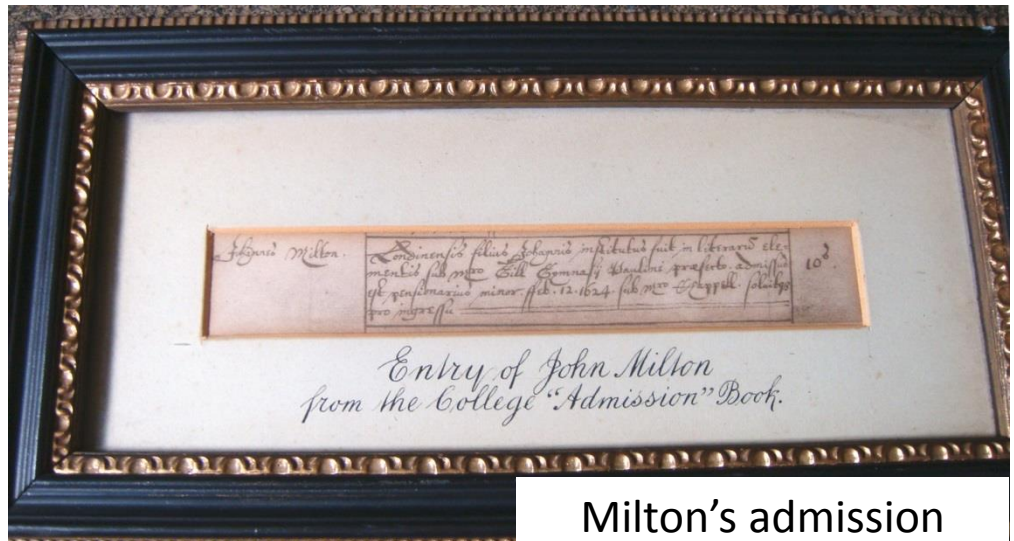 Johannes Milton.
Londinensis filius Johannis institutus fuit in literarū ele-
mentis sub Mro Gill Gymnasij Paulini præfecto. admissus
est pensionarius minor. Feb. 12. 1624 sub Mro Chappell. solvitqꝫ
pro ingressu
10s.
Entry of John Milton
from the College "Admission" Book.
Milton’s admission